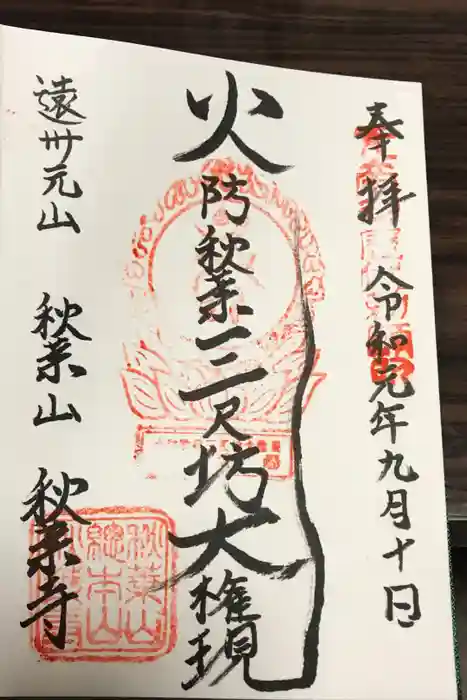 奉拝
令和元年九月十日
火防秋葉三尺坊大権現
遠州元山 秋葉山 秋葉寺
秋葉山
總本山
秋葉寺